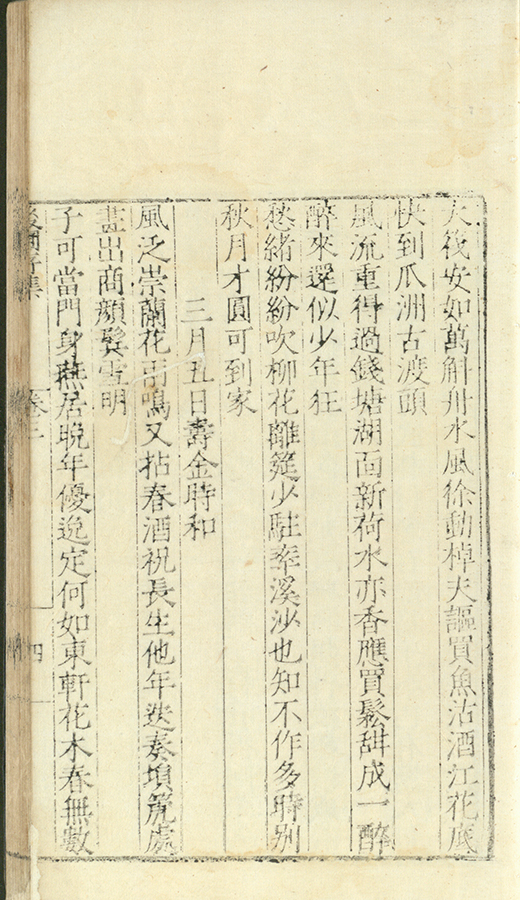 大筏安如萬斛舟水風徐動棹夫謳買魚沽酒江花底
快到瓜洲古渡頭
風流重得過錢塘湖面新荷水亦香應買鬆甜成一醉
醉來還似少年狂
愁緒紛紛吹柳花離筵少駐奉溪沙也知不作多時別
秋月才圓可到家
三月五日壽金時和
風泛崇蘭花雨鳴又拈春酒祝長生他年迭奏塤篪處
畫出商顏鬢雪明
子可當門身蕪居晚年優逸定何如東軒花木春無數
卷三
四